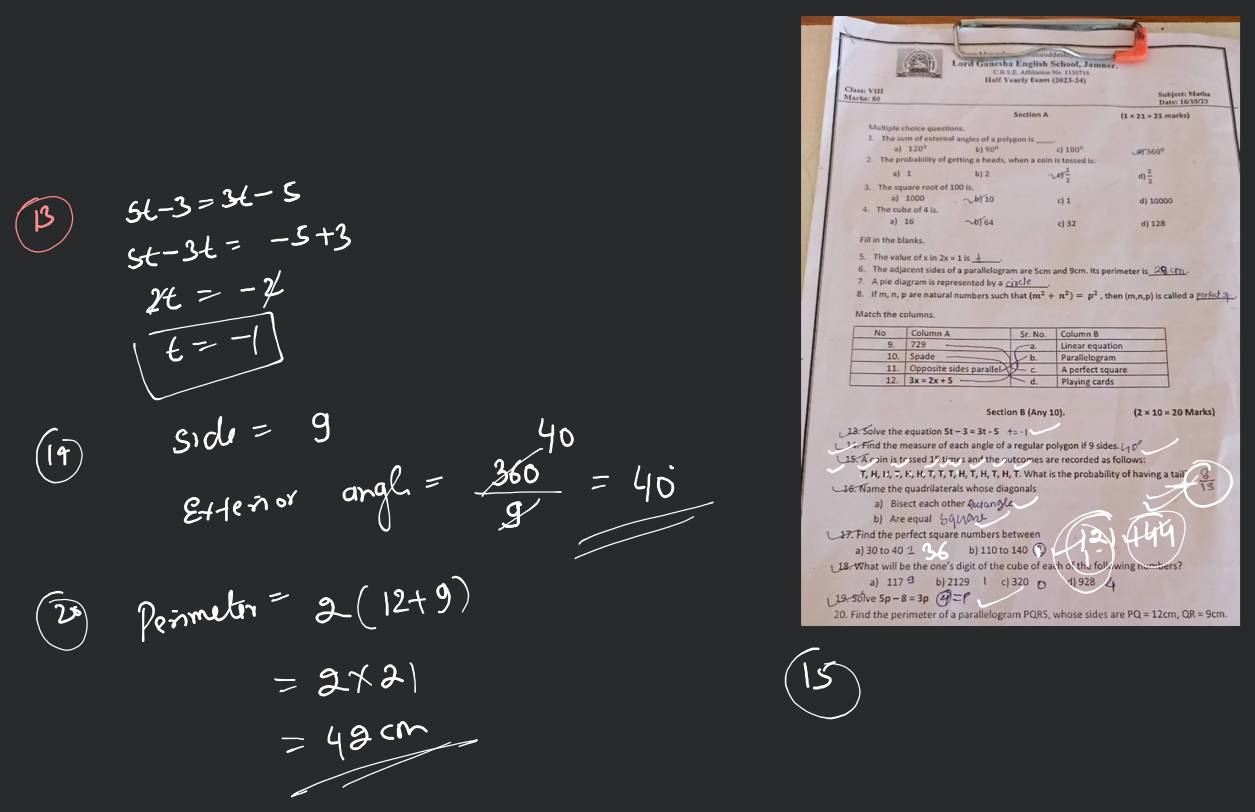 13
5t-3=3t-5
5t-3t= -5+3
2t = -2
t = -1
14
Side = 9
Exterior angle = 360/9 = 40°
40
20
Perimeter = 2(12+9)
= 2×21
= 42 cm
15
Lord Ganesha English School, Jamner.
C.B.S.E. Affiliation No. 1130716
Half Yearly Exam (2023-24)
Class: VIII
Marks: 80
Subject: Maths
Date: 16/10/23
Section A (1 × 21 = 21 marks)
Multiple choice questions.
1. The sum of external angles of a polygon is ____.
a) 120° b) 90° c) 180° d) 360°
2. The probability of getting a heads, when a coin is tossed is.
a) 1 b) 2 c) 1/2 d) 2/2
3. The square root of 100 is.
a) 1000 b) 10 c) 1 d) 10000
4. The cube of 4 is.
a) 16 b) 64 c) 32 d) 128
Fill in the blanks.
5. The value of x in 2x = 1 is
6. The adjacent sides of a parallelogram are 5cm and 9cm. Its perimeter is 28 cm.
7. A pie diagram is represented by a circle.
8. If m, n, p are natural numbers such that (m² + n²) = p², then (m,n,p) is called a
Match the columns.
No Column A Sr. No. Column B
9. 729 a. Linear equation
10. Spade b. Parallelogram
11. Opposite sides parallel c. A perfect square
12. 3x = 2x + 5 d. Playing cards
Section B (Any 10). (2 × 10 = 20 Marks)
13. Solve the equation 5t – 3 = 3t - 5 t=-1
14. Find the measure of each angle of a regular polygon if 9 sides. 40°
15. A coin is tossed 15 times and the outcomes are recorded as follows:
T, H, T, T, T, H, T, H, T, H, T. What is the probability of having a tail 8/15
16. Name the quadrilaterals whose diagonals
a) Bisect each other Rectangle
b) Are equal Square
17. Find the perfect square numbers between
a) 30 to 40 36 b) 110 to 140 121 144
18. What will be the one's digit of the cube of each of the following numbers?
a) 117 9 b) 2129 1 c) 320 0 d) 928 4
19. Solve 5p – 8 = 3p 4=P
20. Find the perimeter of a parallelogram PQRS, whose sides are PQ = 12cm, QR = 9cm.